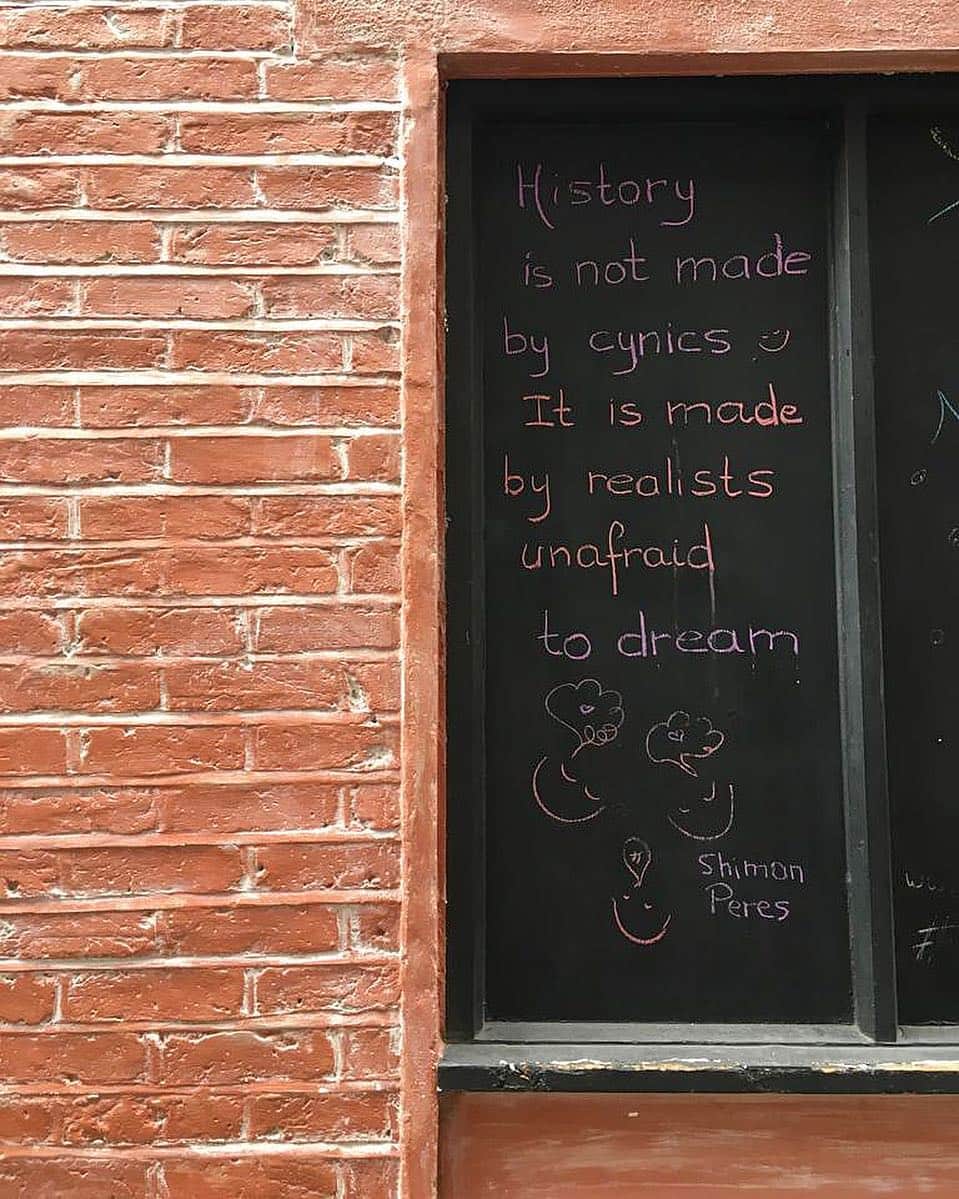 History
is not made
by cynics
It is made
by realists
unafraid
to dream
Shimon
Peres